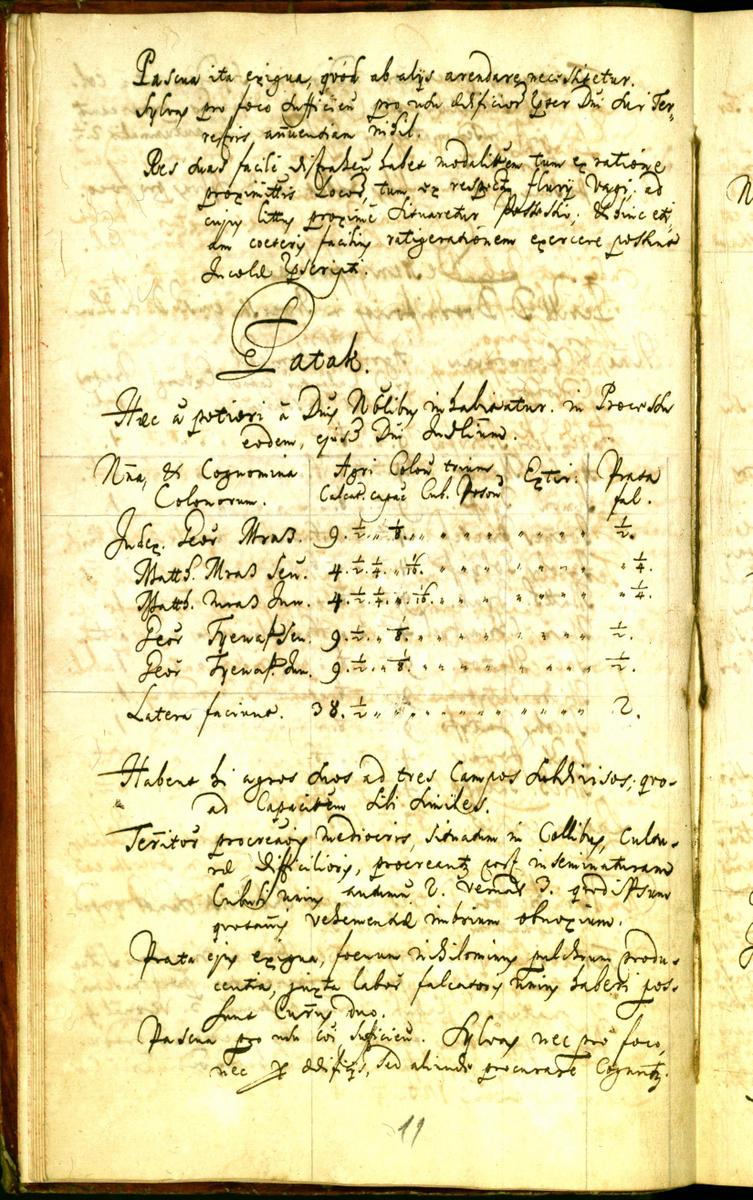 Pascua ita exigua, qvód ab alijs arendare necessitetur.
Sylvas pro foco sufficien pro usu ædificior Dni sui Ter-
restris annuentiam nihil.
Res suas facile distrahen habet modalitem tum ex ratione
proximittis Locor, tum ex respectu fluvij Vagi, ad
cujus littus proxime situaretur Possessio; & hinc eti-
am coeteris facilius ratigerationem exercere possunt
Incolæ
Patak.
Hæc á potiori á Dnis Nõlibus inhabitatur. in Processu
eodem, ejusd Dni Judlium.
Nña, & Cognomina Agri Colon trium Exstir: Prata
Colonorum. Calcat. capac Cub. Poson fal.
Judex. Geor Mras. 9. ½ „ ⅛ „ „ „ „ „ „ „ „ ½.
Matth. Mras Sen. 4. ½. ¼. „ 1/16. „ „ „ „ „ „ „ ¼.
Matth. Mras Jun. 4. ½. ¼. „ 1/16. „ „ „ „ „ „ „ ¼.
Geor Sen. 9. ½ „ ⅛. „ „ „ „ „ „ „ ½.
Geor Jun. 9. ½ „ ⅛. „ „ „ „ „ „ „ ½.
Latera faciunt. 38. ½ „ „ „ „ „ „ „ „ „ 2.
Habent hi agros suos ad tres Campos subdivisos, qvo-
ad Capacitem sibi similes.
Territor procreaõis mediocris, situatum in Collibus, Cultu-
ræ difficilioris, procreantq post inseminaturam
Cubuli unius autumn 2. vernal 3. qvod ipsum
qvotannis vehementiæ imbrium obnoxium.
Prata ejus exigua, foenum nihilominus pulchrum produ-
centia, juxta labor falcatoris unius haberi pos-
sunt Currus duo.
Pascua pro usu suo sufficien. Sylvas nec pro foco,
nec p ædificijs, sed aliunde procurare Coguntq.
11